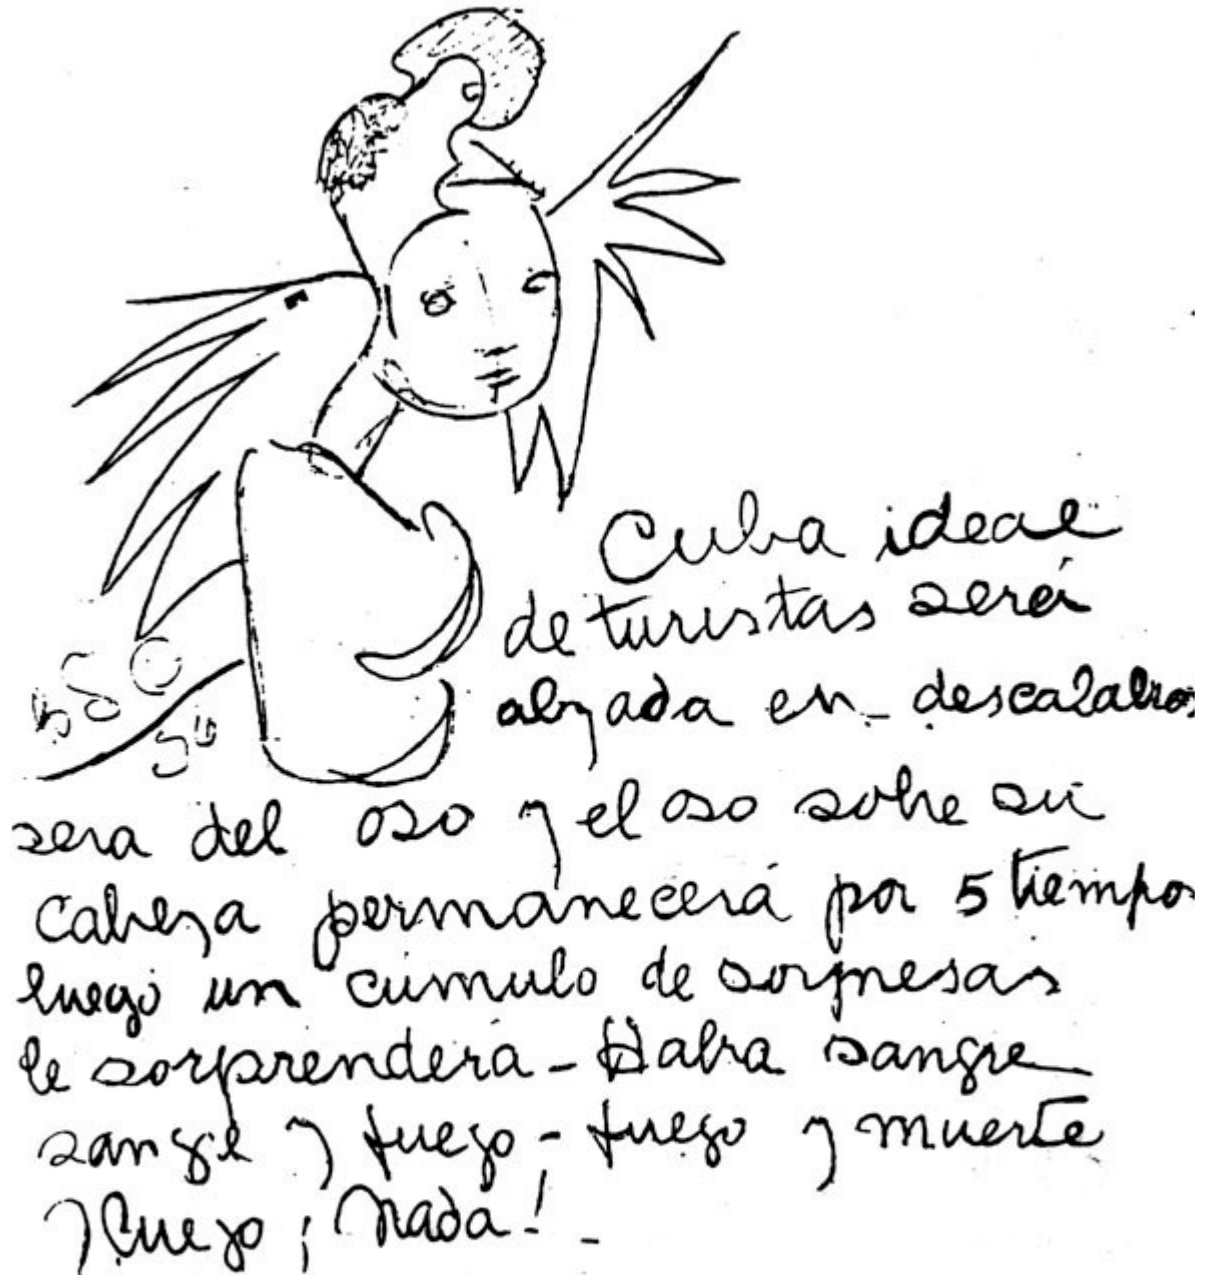 Cuba ideal
de turistas será
alzada en - descalabros
sera del oso y el oso sobre su
cabeza permanecerá por 5 tiempos
luego un cúmulo de sorpresas
le sorprenderá - Habra sangre
sangre y fuego - fuego y muerte
y luego ¡ Nada! -